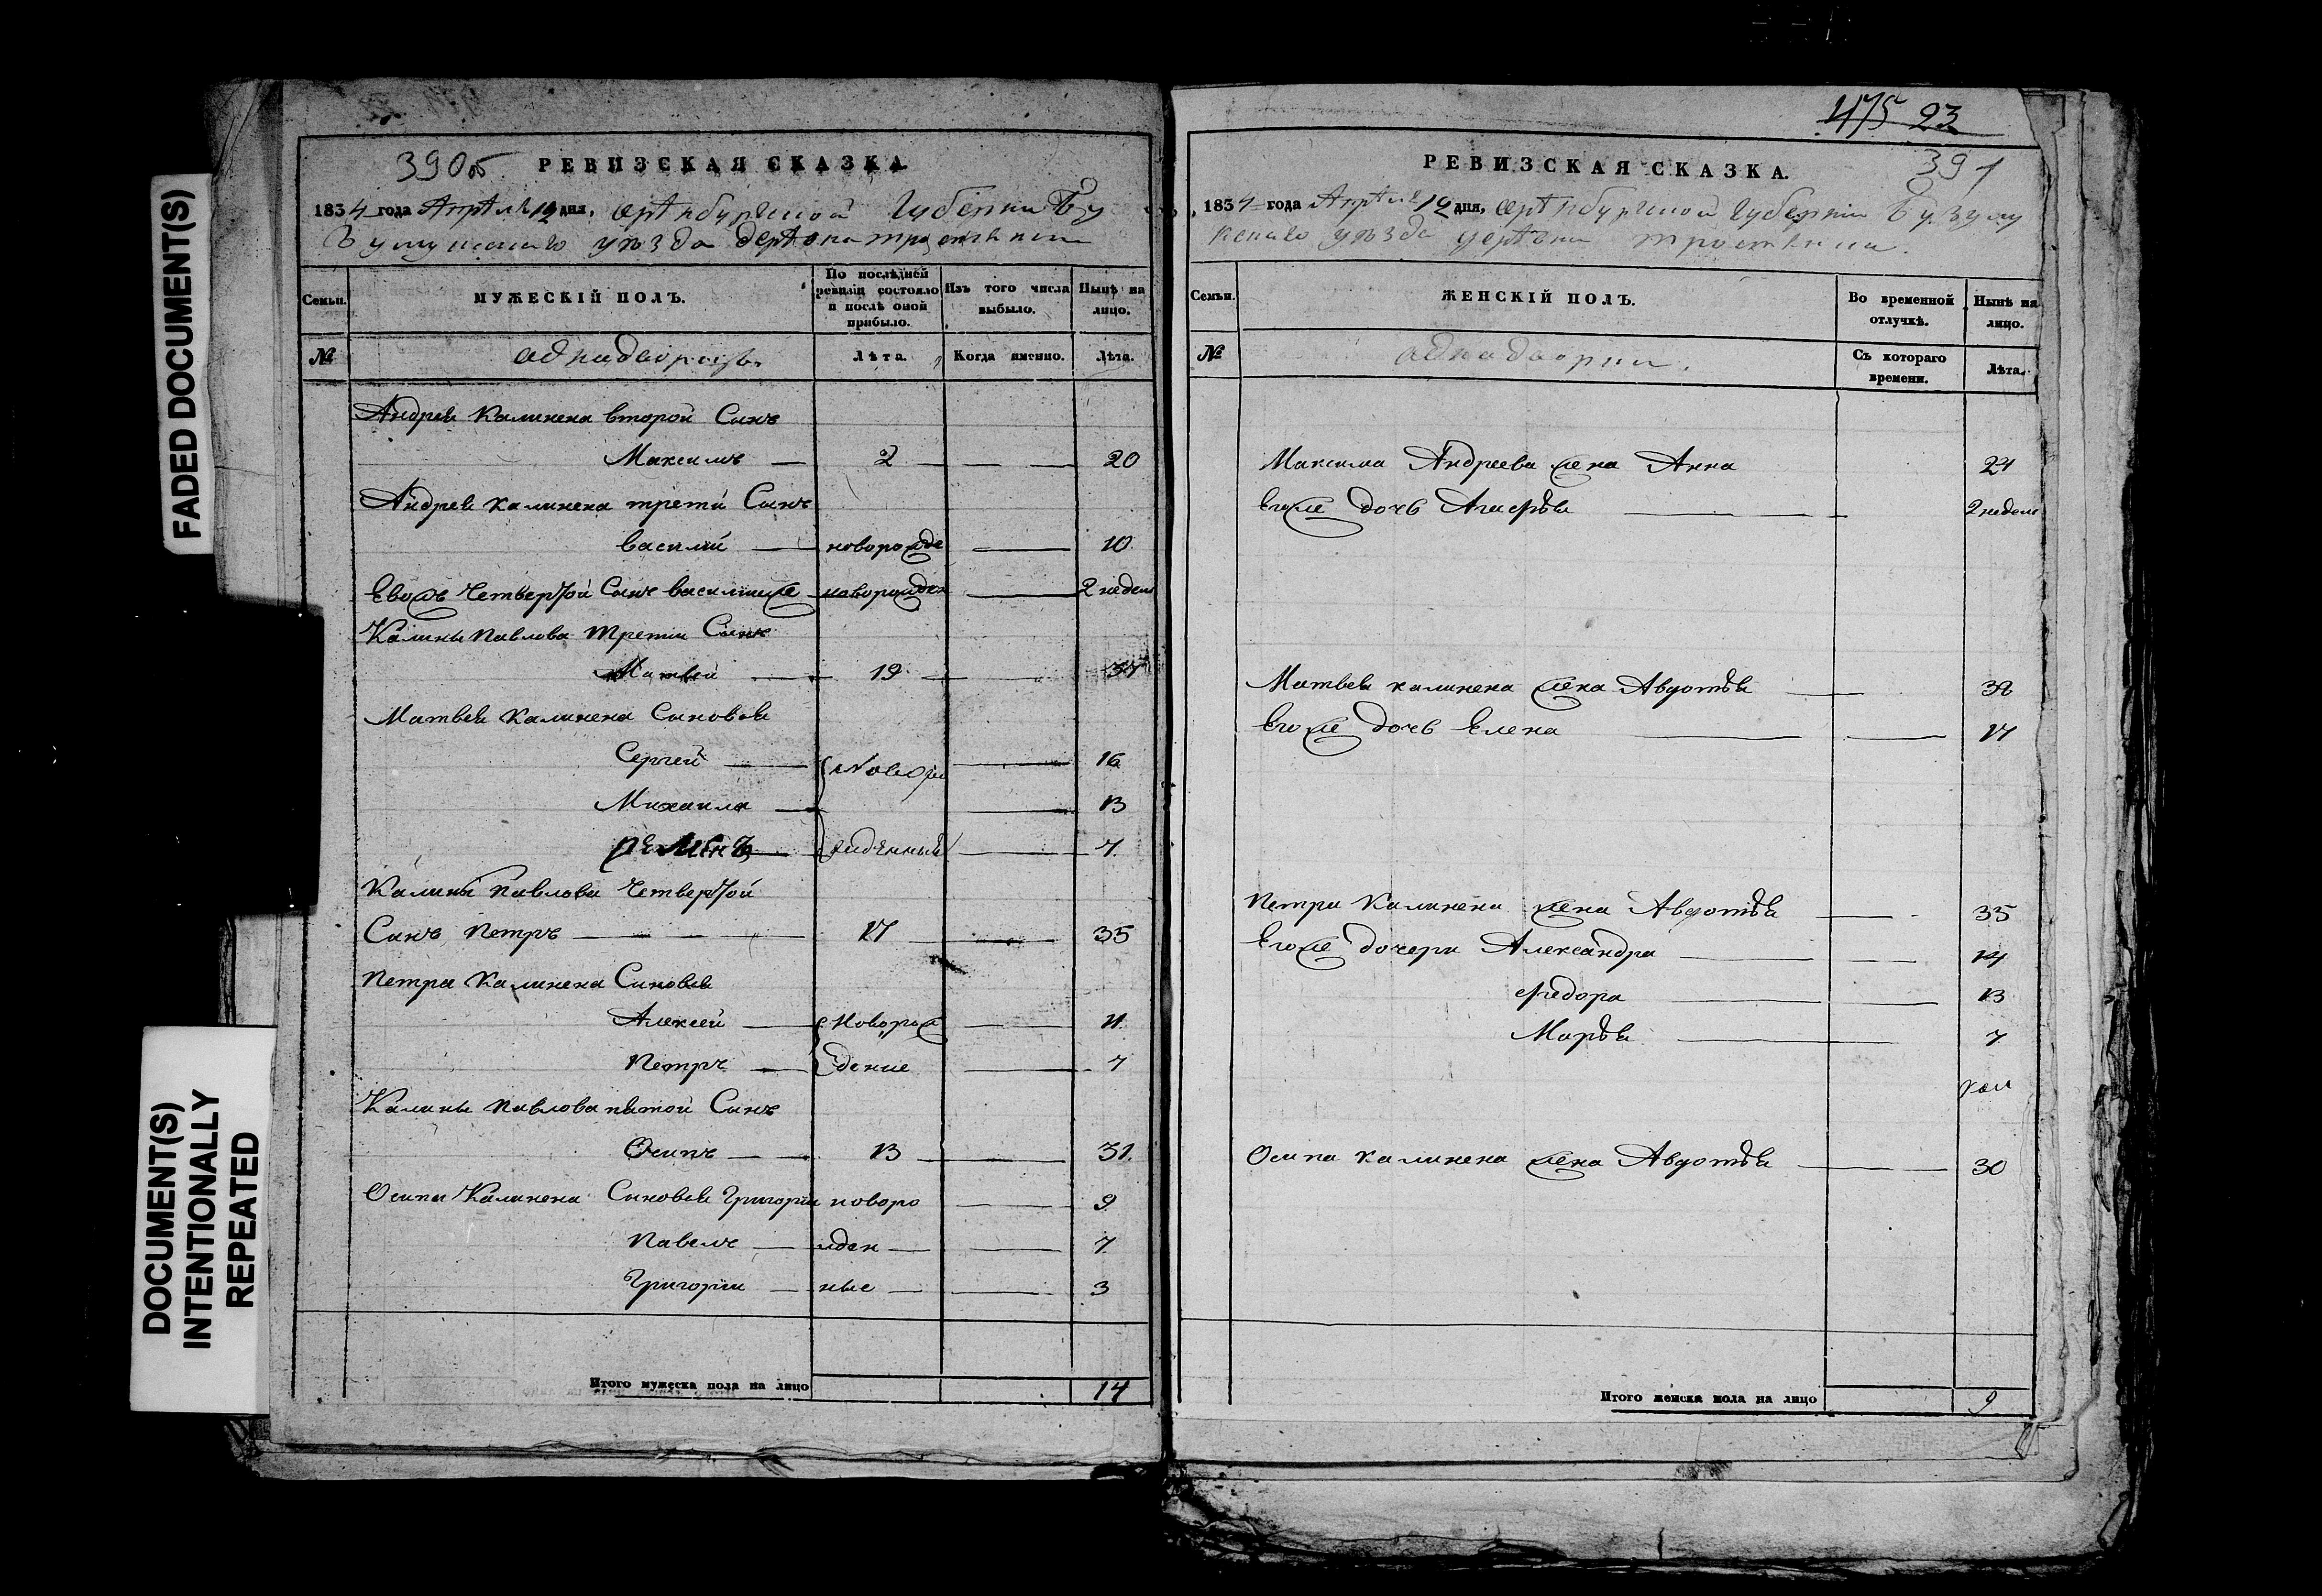 FADED DOCUMENT(S)
DOCUMENT(S)
INTENTIONALLY
REPEATED
390об
РЕВИЗСКАЯ СКАЗКА
1834 года Апреля 12 дня, Оренбургской Губернии Бу
зулукскаго уезда деревни
Семьи.
МУЖЕСКІЙ ПОЛЪ.
По послѣдней
ревизіи состояло
и послѣ оной
прибыло.
Изъ того числа
выбыло.
Нынѣ на
лицо.
№
Лѣта.
Когда именно.
Лѣта.
Андрея Калинена второй Сынъ
Максимъ — 2 — 20
Андрея Калинена трети Сынъ
Василий — новорожде — 10
Евожъ четвертой Сынъ василиже новорожден — 2 недели
Калины Павлова Трети Сынъ
Матвей — 19 —
Матвея Калинена Сыновья
Сергей — Новоро — 16
Михаила — 13
— жденный — 7
Калины Павлова четвертой
Сынъ Петръ — 17 — 35
Петра Калинена Сыновья
Алексей — Новорож — 11
Петръ — дение — 7
Калины Павлова пятой Сынъ
Осипъ — 13 — 31
Осипа Калинена Сыновья Григории новоро — 9
Павелъ — жден — 7
Григории — ные — 3
Итого мужеска пола на лицо 14
475 23
391
РЕВИЗСКАЯ СКАЗКА.
1834 года Апреля 12 дня, Оренбургской Губернии Бузулу
кскаго уезда деревни
Семьи.
ЖЕНСКІЙ ПОЛЪ.
Во временной
отлучкѣ.
Нынѣ на
лицо.
№
Съ котораго
времени.
Лѣта.
Максима Андреева жена Анна
Егоже дочь 2 недели
Матвея калинена жена Авдотья —
Егоже дочь Елена — 17
Петра Калинена жена Авдотья — 35
Егоже дочери Александра — 14
Федора — 13
Марья — 7
Осипа калинена жена Авдотья — 30
Итого женска пола на лицо 9